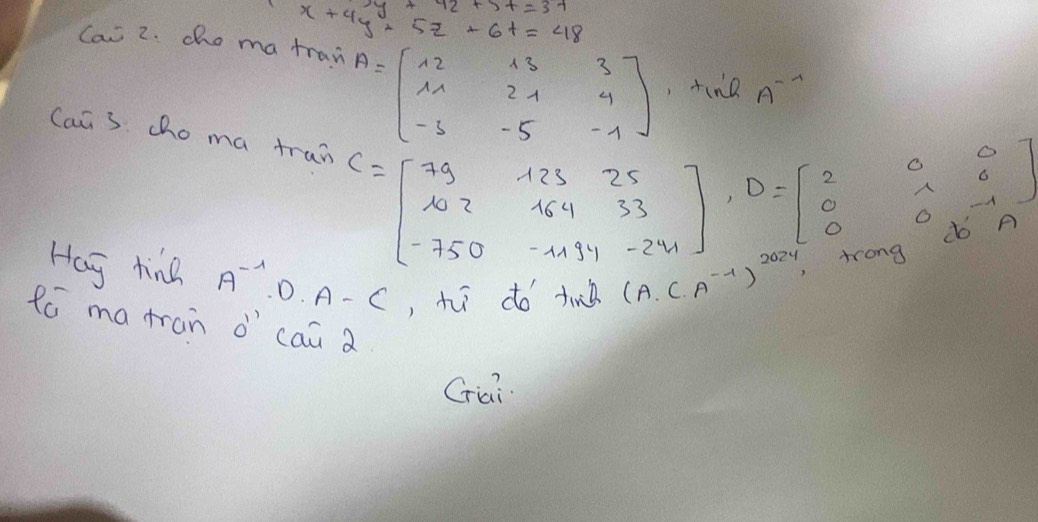 x + 4y + 5z + 6t = 48
Câu 2. cho ma trận A = [ 12 13 3
11 21 4
-3 -5 -1 ], tính A⁻¹
Câu 3. cho ma trận C = [ 79 123 25
102 164 33
-750 -1194 -241 ], D = [ 2 0 0
0 1 0
0 0 -1 ]
Hãy tính A⁻¹.D.A - C, từ đó tính (A.C.A⁻¹)²⁰²⁴, trong đó A
là ma trận ở câu 2
Giải.